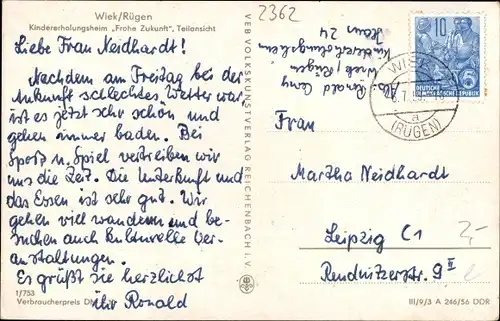 Wiek/Rügen
Kindererholungsheim „Frohe Zukunft", Teilansicht
2362
Liebe Frau Neidhardt!
Nachdem am Freitag bei der
Ankunft schlechtes Wetter war
ist es jetzt sehr schön und
gehen immer baden. Bei
Sport u. Spiel vertreiben wir
uns die Zeit. Die Unterkunft und
das Essen ist sehr gut. Wir
gehen viel wandern und be-
suchen auch kulturelle Ver-
anstaltungen.
Es grüßt sie herzlichst
ihr Ronald
1/753
Verbraucherpreis
VEB VOLKSKUNSTVERLAG REICHENBACH i. V.
Ronald
Wiek/Rügen
Kindererholungsheim
Heim 24
10
5
DEUTSCHE
DEMOKRATISCHE REPUBLIK
WIEK
a
(RÜGEN)
Frau
Martha Neidhardt
Leipzig C1
Reudnitzerstr. 9 II
2,-
III/9/3 A 246/56 DDR